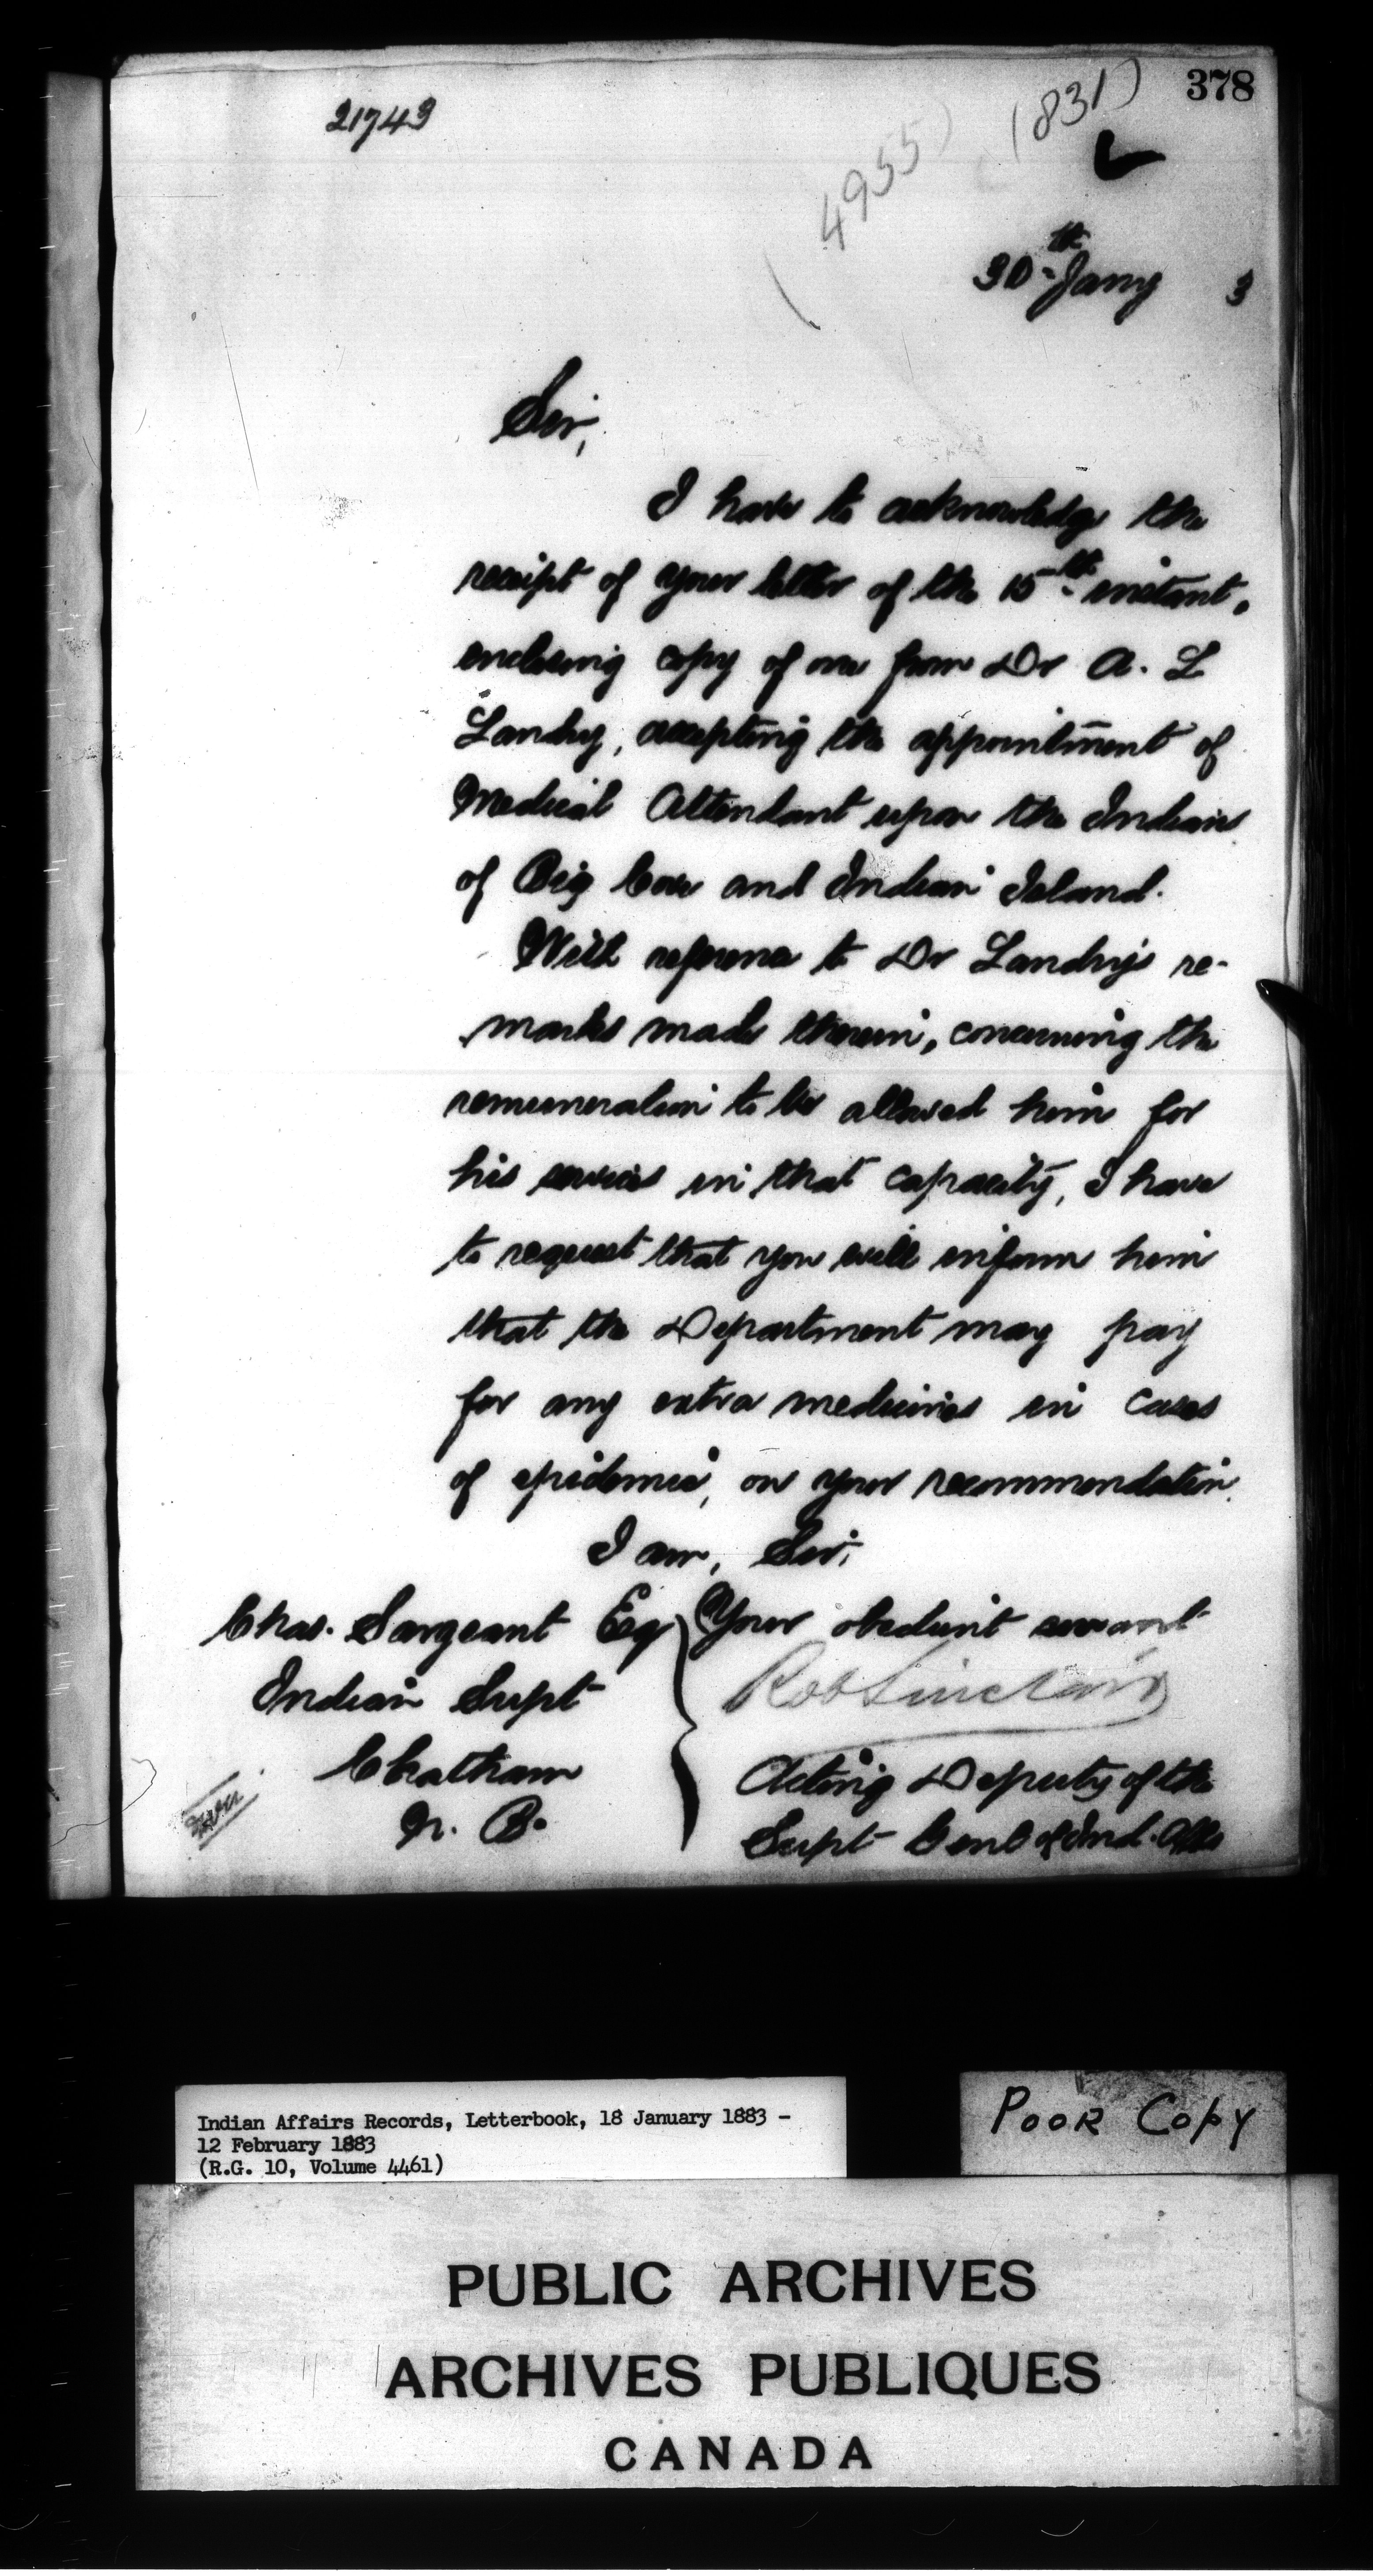 378
21743
(831)
(4955)
30th Jany 3
Sir,
I have to acknowledge the
receipt of your letter of the 15th instant,
enclosing copy of one from Dr A. L
Landry, accepting the appointment of
Medical Attendant upon the Indians
of Big Cove and Indian Island.
With reference to Dr Landry's re-
marks made therein, concerning the
remuneration to be allowed him for
his services in that capacity, I have
to request that you will inform him
that the Department may pay
for any extra medicines in cases
of epidemic, on your recommendation.
I am, Sir,
Chas. Sargeant Esq
Your obedient servant
Indian Supt
Rob Sinclair
Chatham
N. B.
Acting Deputy of the
Supt Genl of Ind. Affs
Indian Affairs Records, Letterbook, 18 January 1883 -
12 February 1883
(R.G. 10, Volume 4461)
POOR COPY
PUBLIC ARCHIVES
ARCHIVES PUBLIQUES
CANADA